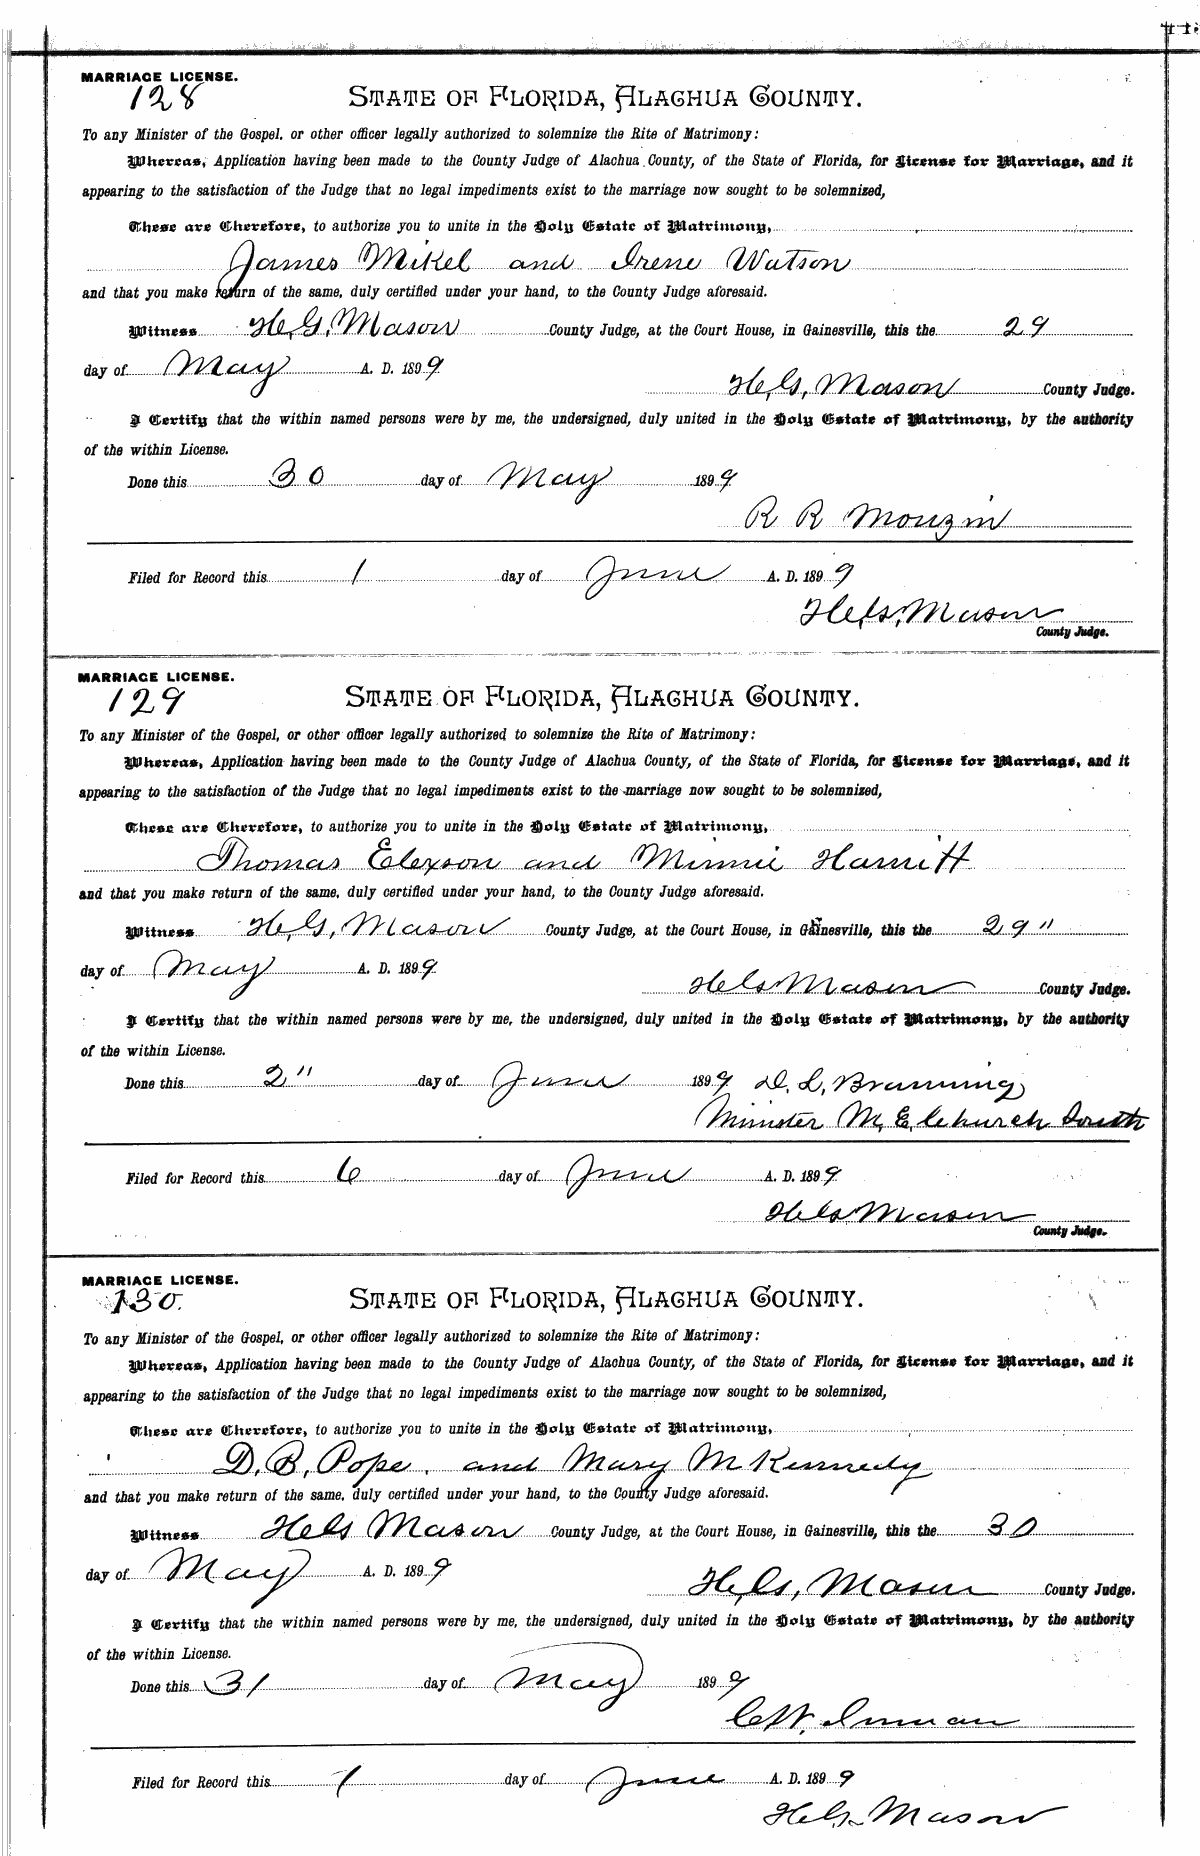 MARRIAGE LICENSE.
128
STATE OF FLORIDA, ALACHUA COUNTY.
To any Minister of the Gospel, or other officer legally authorized to solemnize the Rite of Matrimony:
Whereas, Application having been made to the County Judge of Alachua County, of the State of Florida, for License for Marriage, and it
appearing to the satisfaction of the Judge that no legal impediments exist to the marriage now sought to be solemnized,
These are Therefore, to authorize you to unite in the Holy Estate of Matrimony,
James Mikel and Irene Watson
and that you make return of the same, duly certified under your hand, to the County Judge aforesaid.
Witness H. G. Mason County Judge, at the Court House, in Gainesville, this the 29
day of May A. D. 1899
H. G. Mason County Judge.
I Certify that the within named persons were by me, the undersigned, duly united in the Holy Estate of Matrimony, by the authority
of the within License.
Done this 30 day of May 1899
R R Mouzin
Filed for Record this 1 day of June A. D. 1899
H. G. Mason
County Judge.
MARRIAGE LICENSE.
129
STATE OF FLORIDA, ALACHUA COUNTY.
To any Minister of the Gospel, or other officer legally authorized to solemnize the Rite of Matrimony:
Whereas, Application having been made to the County Judge of Alachua County, of the State of Florida, for License for Marriage, and it
appearing to the satisfaction of the Judge that no legal impediments exist to the marriage now sought to be solemnized,
These are Therefore, to authorize you to unite in the Holy Estate of Matrimony,
Thomas Elexson and Minnie Harritt
and that you make return of the same, duly certified under your hand, to the County Judge aforesaid.
Witness H. G. Mason County Judge, at the Court House, in Gainesville, this the 29"
day of May A. D. 1899
H G Mason County Judge.
I Certify that the within named persons were by me, the undersigned, duly united in the Holy Estate of Matrimony, by the authority
of the within License.
Done this 2" day of June 1899 D. L. Branning
Minister M. E. Church South
Filed for Record this 6 day of June A. D. 1899
H G Mason
County Judge.
MARRIAGE LICENSE.
130.
STATE OF FLORIDA, ALACHUA COUNTY.
To any Minister of the Gospel, or other officer legally authorized to solemnize the Rite of Matrimony:
Whereas, Application having been made to the County Judge of Alachua County, of the State of Florida, for License for Marriage, and it
appearing to the satisfaction of the Judge that no legal impediments exist to the marriage now sought to be solemnized,
These are Therefore, to authorize you to unite in the Holy Estate of Matrimony,
D. B. Pope. and Mary M Kennedy
and that you make return of the same, duly certified under your hand, to the County Judge aforesaid.
Witness H G Mason County Judge, at the Court House, in Gainesville, this the 30
day of May A. D. 1899
H. G. Mason County Judge.
I Certify that the within named persons were by me, the undersigned, duly united in the Holy Estate of Matrimony, by the authority
of the within License.
Done this 31 day of May 1899
C W. Inman
Filed for Record this 1 day of June A. D. 1899
H G. Mason